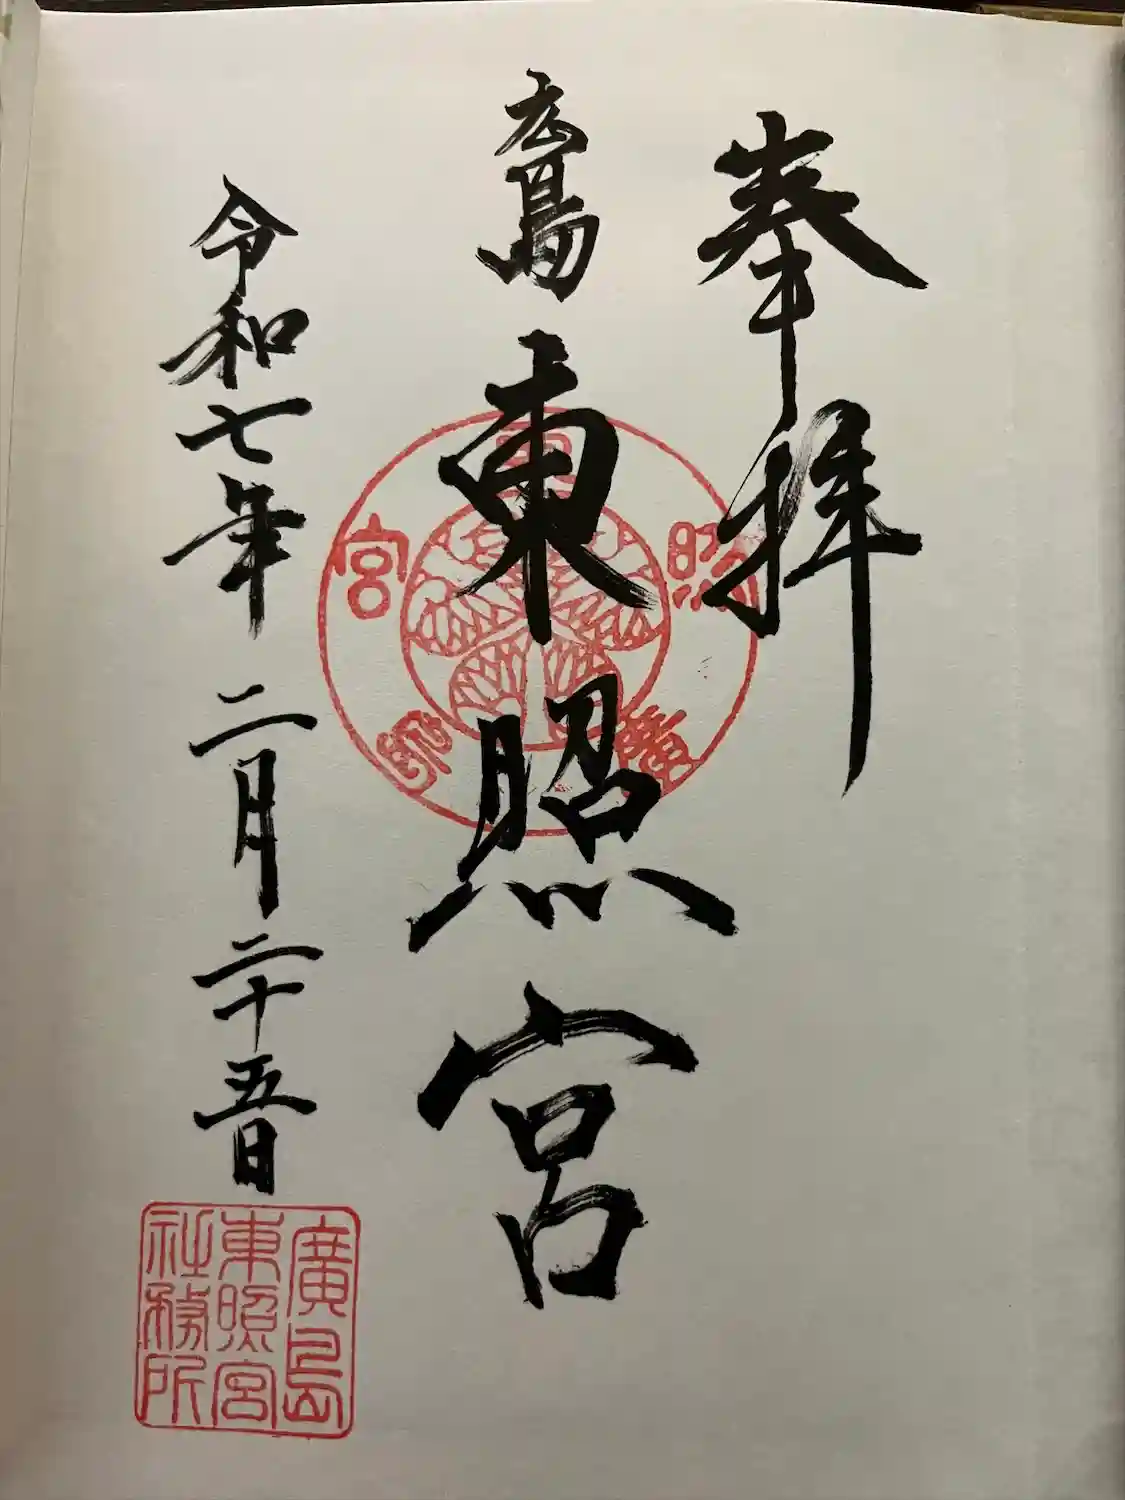 奉拝
広島東照宮
令和七年二月二十五日
東照宮廣島
廣島
東照宮
社務所